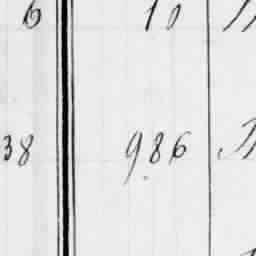 6 10
38 986